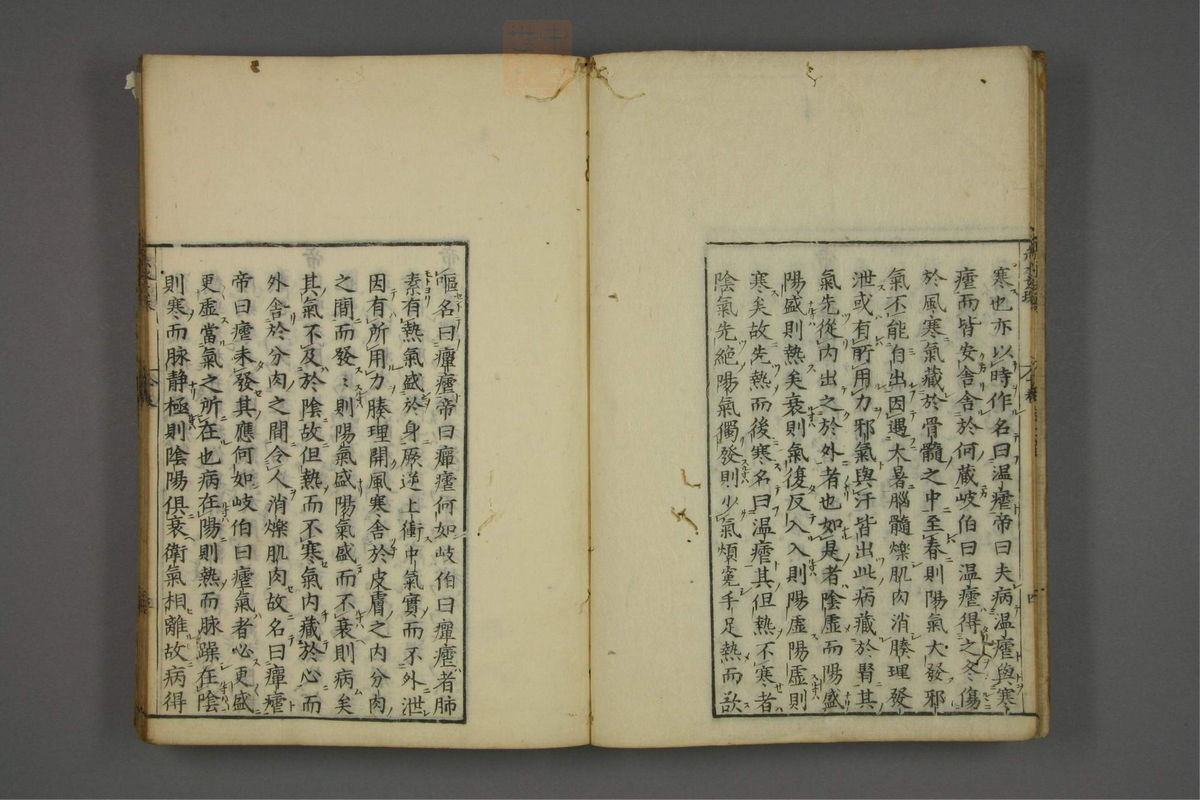 寒也亦以時作名曰温瘧帝曰夫病温瘧與寒
瘧而皆安舍舍於何藏岐伯曰温瘧得之冬傷
於風寒氣藏於骨髓之中至春則陽氣大發邪
氣不能自出因遇大暑腦髓爍肌肉消腠理發
泄或有所用力邪氣與汗皆出此病藏於腎其
氣先從内出之於外者也如是者陰虚而陽盛
陽盛則熱矣衰則氣復反入入則陽虚陽虚則
寒矣故先熱而後寒名曰温瘧其但熱不寒者
陰氣先絶陽氣獨發則少氣煩寃手足熱而欲
嘔名曰癉瘧帝曰癉瘧何如岐伯曰癉瘧者肺
素有熱氣盛於身厥逆上衝中氣實而不外泄
因有所用力腠理開風寒舍於皮膚之内分肉
之間而發〻則陽氣盛陽氣盛而不衰則病矣
其氣不及於陰故但熱而不寒氣内藏於心而
外舍於分肉之間令人消爍肌肉故名曰癉瘧
帝曰瘧未發其應何如岐伯曰瘧氣者必更盛
更虚當氣之所在也病在陽則熱而脉躁在陰
則寒而脉静極則陰陽俱衰衛氣相離故病得